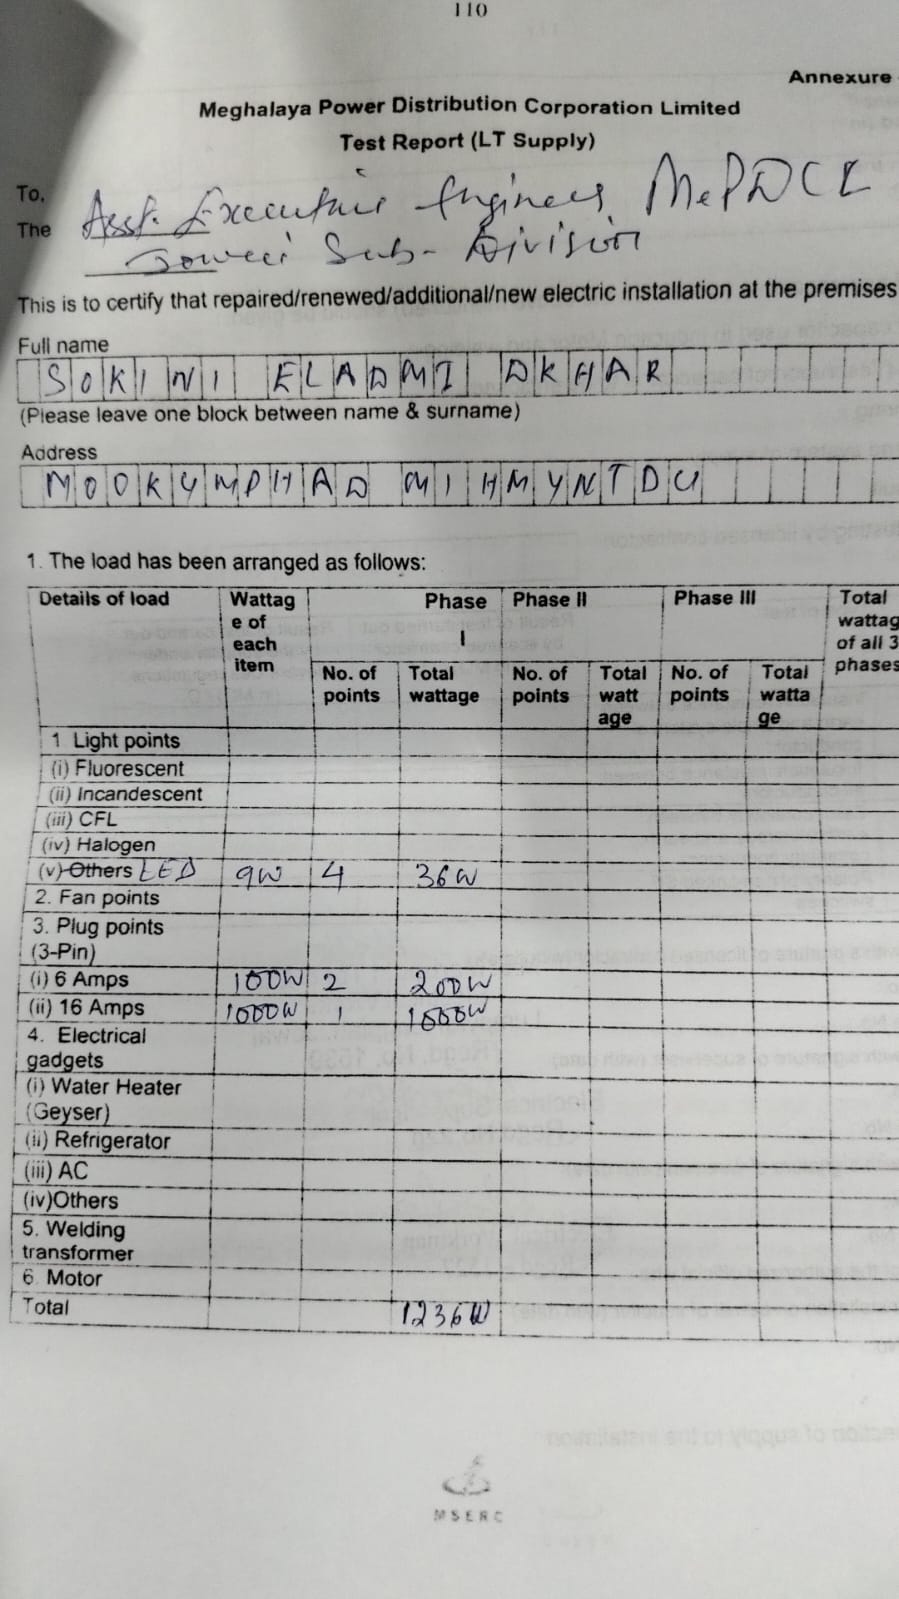 110
Annexure
Meghalaya Power Distribution Corporation Limited
Test Report (LT Supply)
To,
The Asst. Executive Engineer, MePDCL
Jowai Sub-Division
This is to certify that repaired/renewed/additional/new electric installation at the premises
Full name
SOKINI ELADMI DKHAR
(Please leave one block between name & surname)
Address
MOOKYMPHAD MIHMYNTDU
1. The load has been arranged as follows:
Details of load Wattag e of each item Phase I Phase II Phase III Total wattag of all 3 phases
No. of points Total wattage No. of points Total watt age No. of points Total watta ge
1 Light points
(i) Fluorescent
(ii) Incandescent
(iii) CFL
(iv) Halogen
(v) Others LED 9W 4 36W
2. Fan points
3. Plug points
(3-Pin)
(i) 6 Amps 100W 2 200W
(ii) 16 Amps 1000W 1 1000W
4. Electrical
gadgets
(i) Water Heater
(Geyser)
(ii) Refrigerator
(iii) AC
(iv)Others
5. Welding
transformer
6. Motor
Total 1236W
MSERC